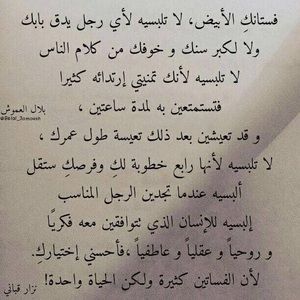 فستانكِ الأبيض، لا تلبسيه لأي رجل يدق بابك
ولا لكبر سنك و خوفك من كلام الناس
لا تلبسيه لأنك تمنيتي إرتدائه كثيرا
فتستمتعين به لمدة ساعتين ،
بلال العموش
@Belal_Jamoush
و قد تعيشين بعد ذلك تعيسة طول عمرك ،
لا تلبسيه لأنها رابع خطوبة لك وفرصكِ ستقل
ألبسيه عندما تجدين الرجل المناسب
إلبسيه للإنسان الذي تتوافقين معه فكريًا
و روحياً و عقلياً و عاطفياً ،فأحسني إختياركِ.
لأن الفساتين كثيرة ولكن الحياة واحدة!
نزار قباني